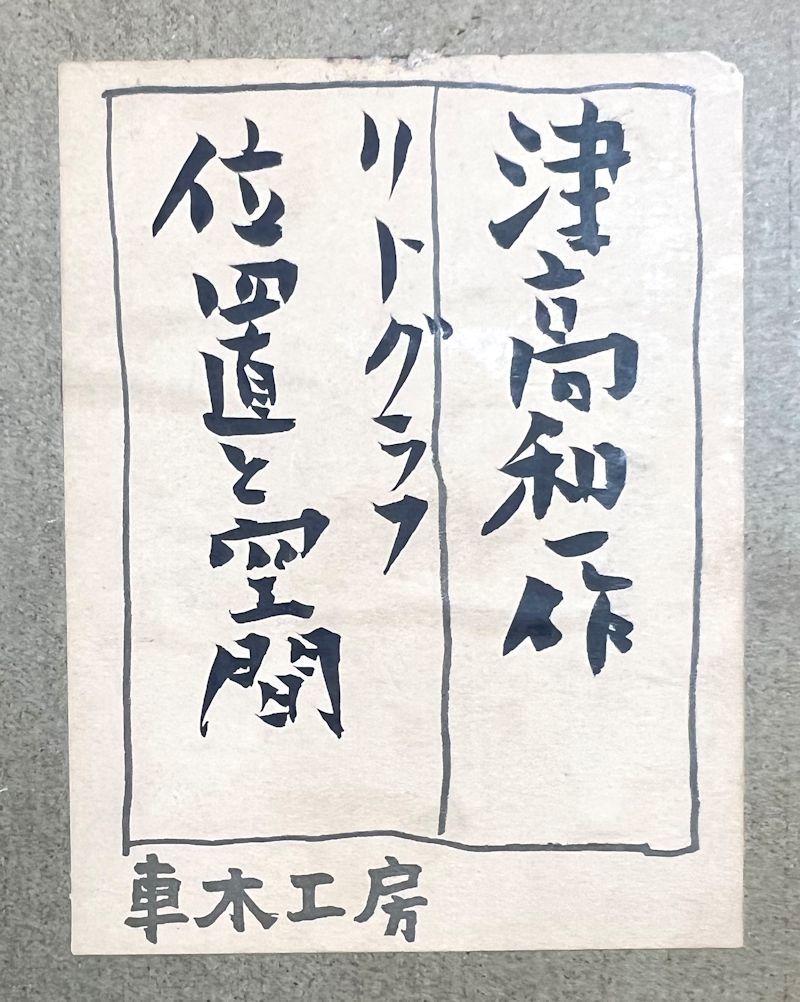 津高和一作
リトグラフ
位置と空間
車木工房